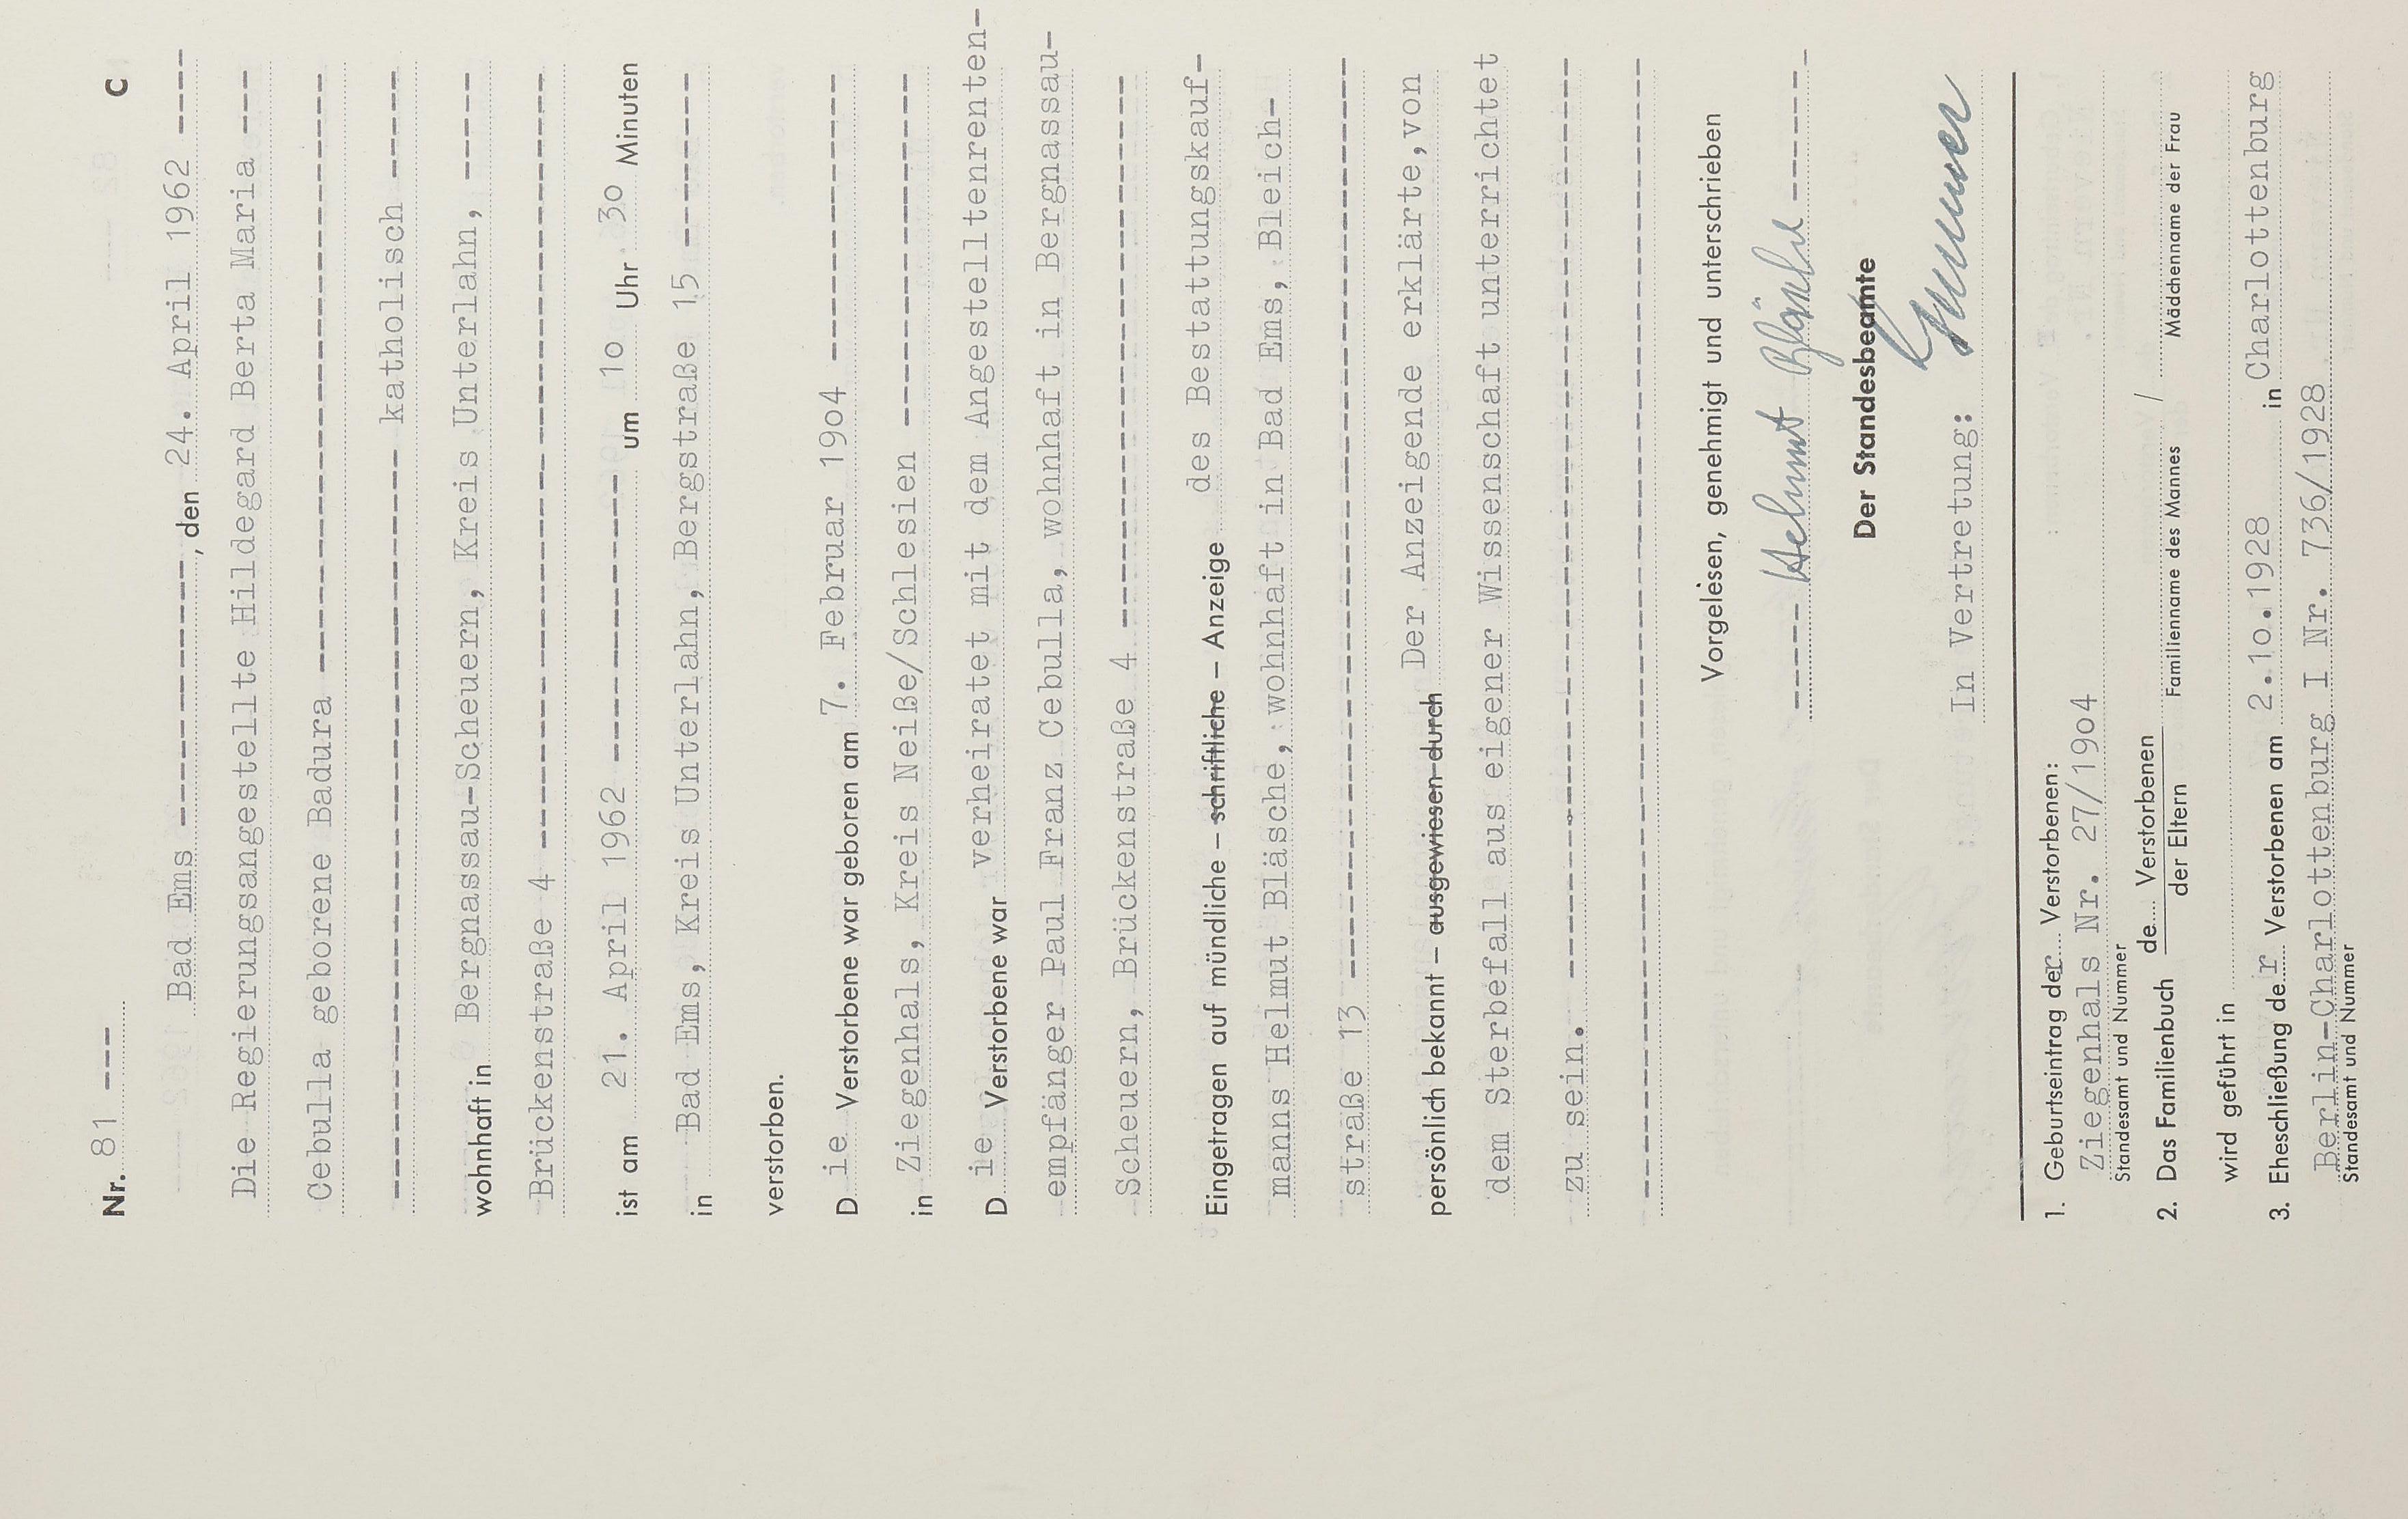 Nr. 81 --- C
Bad Ems -------------, den 24. April 1962 ----
Die Regierungsangestellte Hildegard Berta Maria ---
Cebulla geborene Badura -----------------------------
------------------------------------ katholisch -----
wohnhaft in Bergnassau-Scheuern, Kreis Unterlahn, -----
Brückenstraße 4 -------------------------------------
ist am 21. April 1962 -------------- um 1o Uhr 3o Minuten
in Bad Ems, Kreis Unterlahn, Bergstraße 15 --------
verstorben.
D ie Verstorbene war geboren am 7. Februar 19o4 -------------
in Ziegenhals, Kreis Neiße/Schlesien -----------------
D ie Verstorbene war verheiratet mit dem Angestelltenrenten-
empfänger Paul Franz Cebulla, wohnhaft in Bergnassau-
Scheuern, Brückenstraße 4 --------------------------
Eingetragen auf mündliche – schriftliche – Anzeige des Bestattungskauf-
manns Helmut Bläsche, wohnhaft in Bad Ems, Bleich-
straße 13 -------------------------------------------
persönlich bekannt – ausgewiesen durch Der Anzeigende erklärte,von
dem Sterbefall aus eigener Wissenschaft unterrichtet
zu sein. --------------------------------------------
-----------------------------------------------------
Vorgelesen, genehmigt und unterschrieben
----- Helmut Bläsche -------
Der Standesbeamte
In Vertretung:
1. Geburtseintrag der Verstorbenen:
Ziegenhals Nr. 27/19o4
Standesamt und Nummer
2. Das Familienbuch de.... Verstorbenen / 
der Eltern Familienname des Mannes Mädchenname der Frau
wird geführt in
3. Eheschließung de r Verstorbenen am 2.1o.1928 in Charlottenburg
Berlin-Charlottenburg I Nr. 736/1928
Standesamt und Nummer